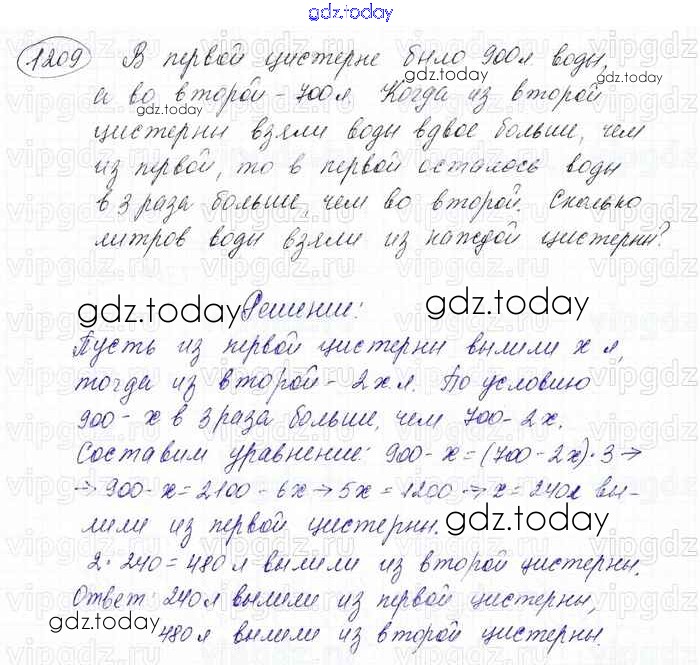 gdz.today
1209 В первой цистерне было 900 л воды,
а во второй - 700 л Когда из второй
цистерны взяли воды вдвое больше, чем
из первой, то в первой осталось воды
в 3 раза больше, чем во второй. Сколько
литров воды взяли из каждой цистерны?
gdz.today Решение: gdz.today
Пусть из первой цистерны вылили x л,
тогда из второй - 2x л. По условию
900 - x в 3 раза больше, чем 700 - 2x.
Составим уравнение: 900 - x = (700 - 2x) · 3 →
→ 900 - x = 2100 - 6x → 5x = 1200 → x = 240 л вы-
лили из первой цистерны.
gdz.today
2 · 240 = 480 л вылили из второй цистерны.
Ответ: 240 л вылили из первой цистерны,
480 л вылили из второй цистерны